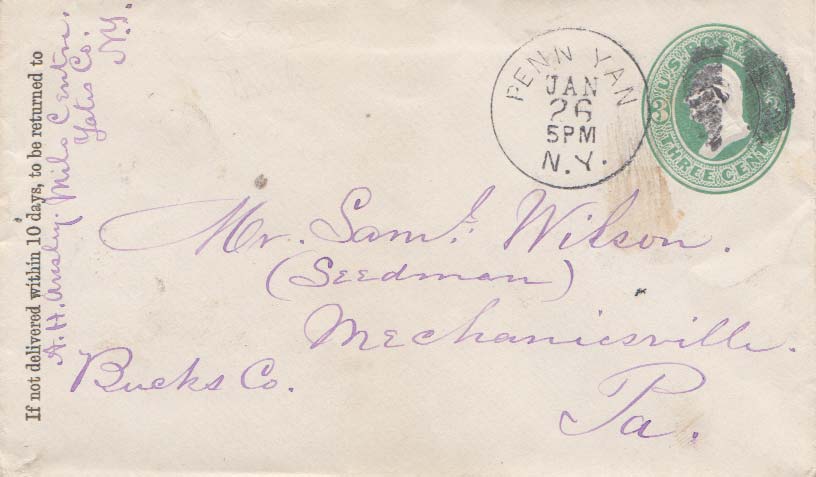 If not delivered within 10 days, to be returned to
A. H. Ansley. Milo Centre.
Yates Co.
N.Y.
PENN YAN
JAN
26
5PM
N.Y.
U.S. POSTAGE
3
THREE CENTS
Mr. Saml. Wilson.
(Seedman)
Mechanicsville.
Bucks Co.
Pa.